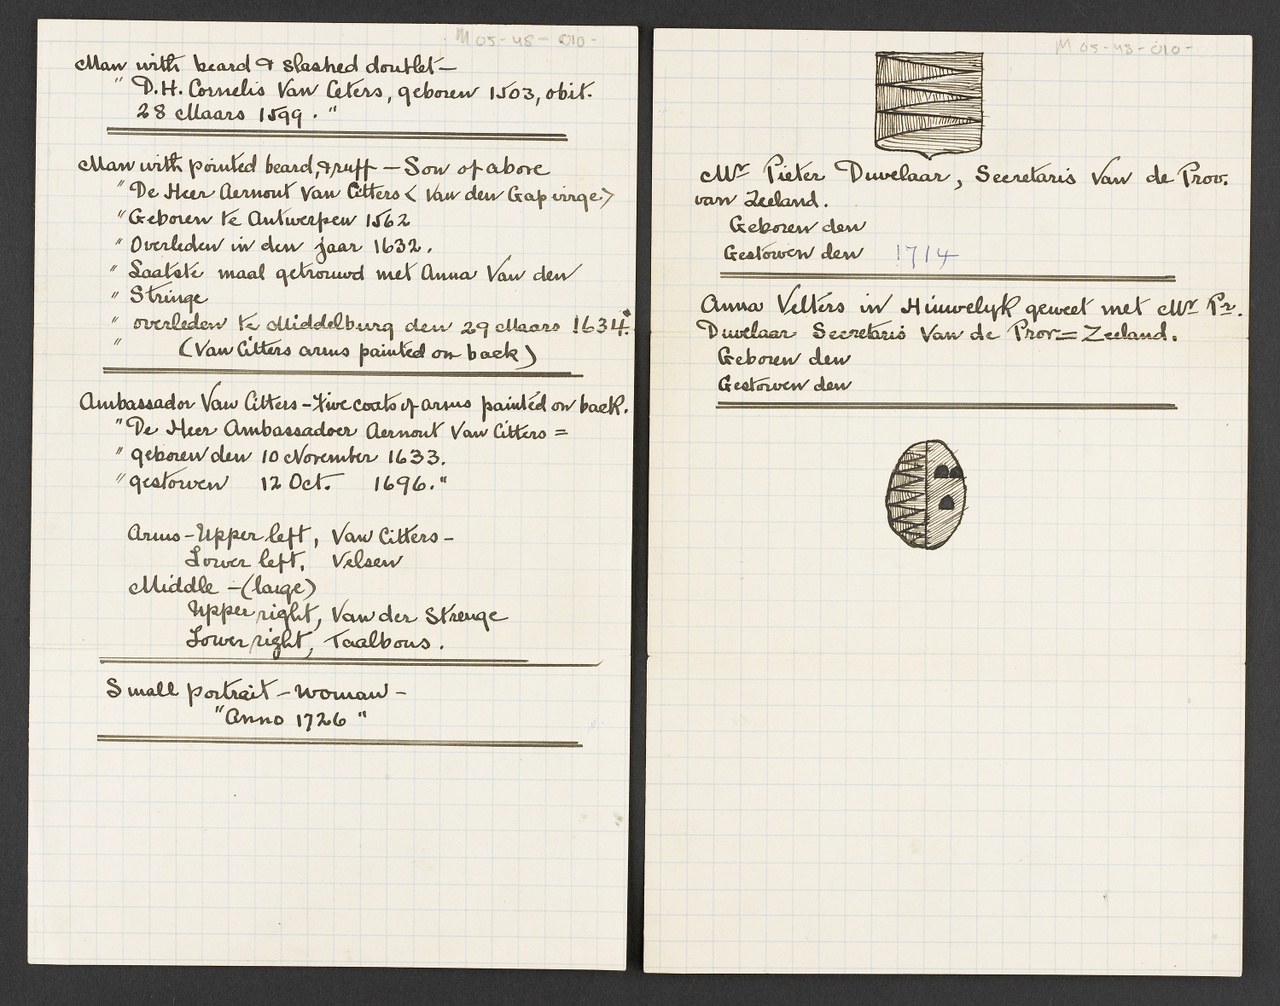 M 05-48-010-
Man with beard & slashed doublet—
" D.H. Cornelis Van Ceters, geboren 1503, obit.
28 Maars 1599. "
Man with pointed beard, & ruff — Son of above
" De Heer Aernout Van Citters < Van den Gapinge >
" Geboren te Antwerpen 1562
" Overleden in den jaar 1632.
" Laatste maal getrouwd met Anna Van den
" Stringe
" overleden te Middelburg den 29 Maars 1634."
" (Van Citters arms painted on back)
Ambassador Van Citters - Five coats of arms painted on back.
" De Heer Ambassadoer Aernout Van Citters =
" geboren den 10 November 1633.
" gestorven 12 Oct. 1696. "
Arms - Upper left, Van Citters -
Lower left, Velsen
Middle - (large)
Upper right, Van der Strenge
Lower right, Taalbous.
Small portrait - woman -
"Anno 1726 "
M 05-48-010-
Mr Pieter Duvelaar, Secretaris Van de Prov.
van Zeeland.
Geboren den
Gestorven den 1714
Anna Velters in Hiuwelyk geweet met Mr Pr.
Duvelaar Secretaris Van de Prov= Zeeland.
Geboren den
Gestorven den